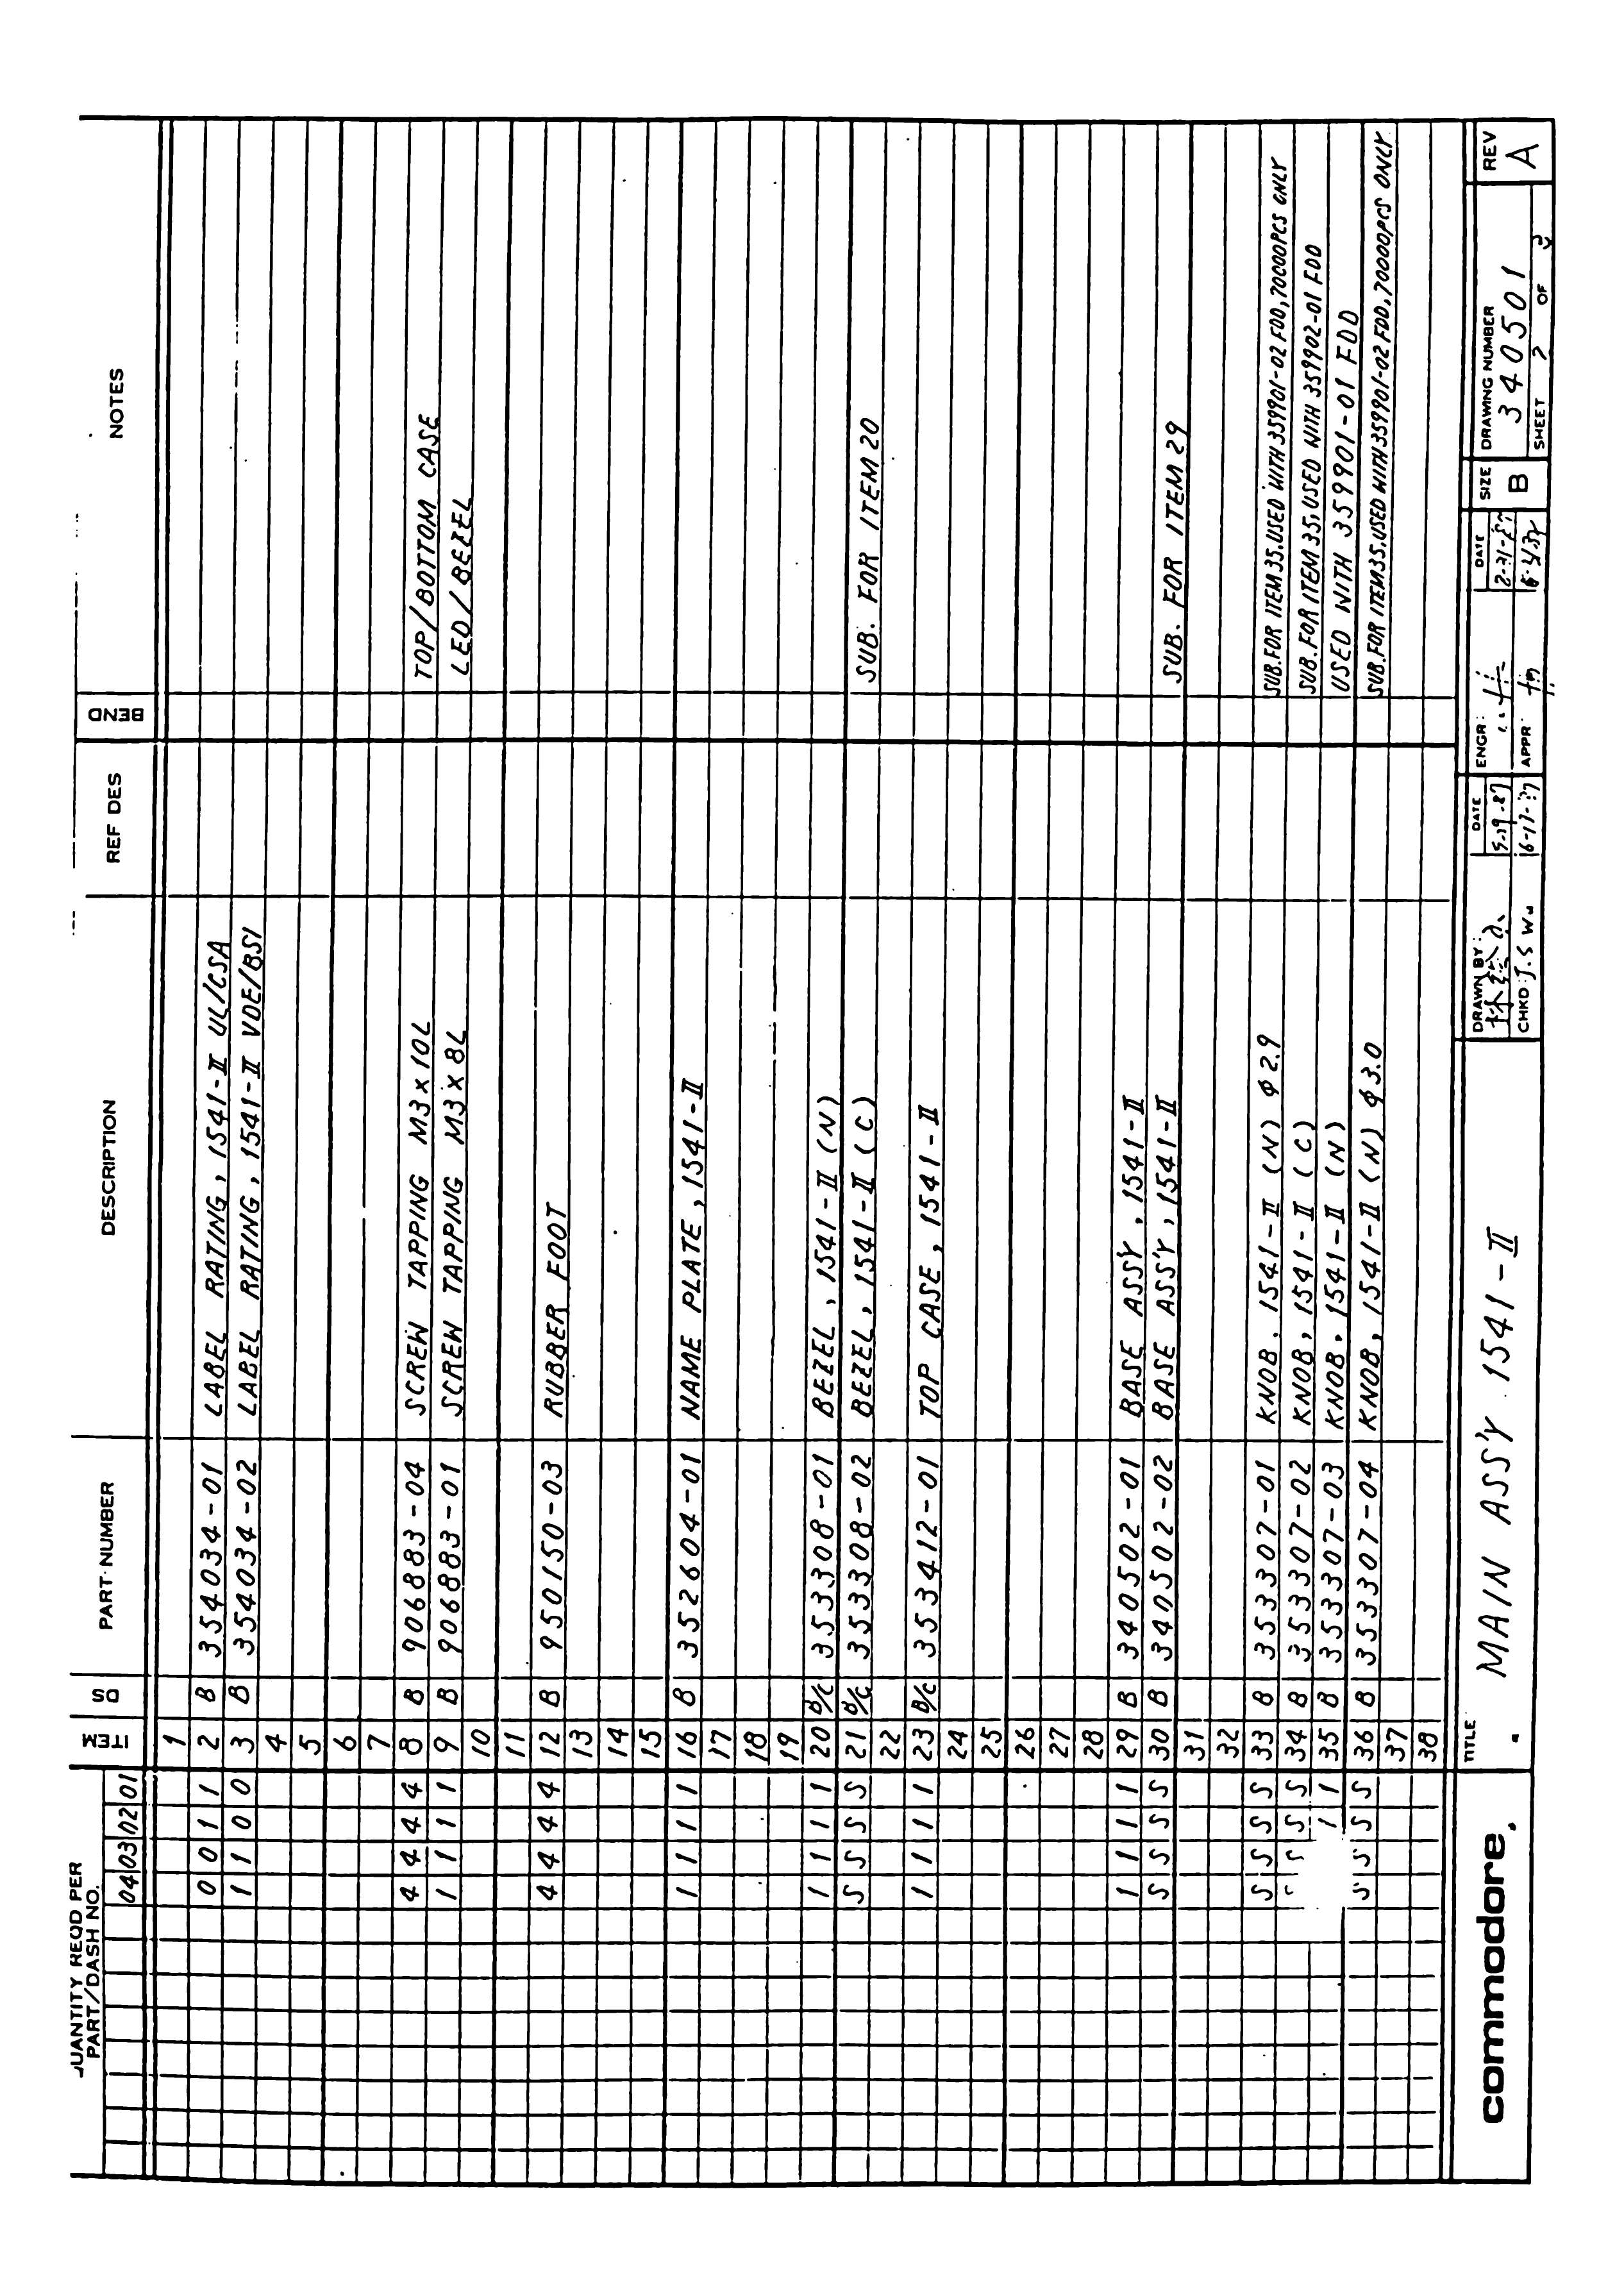 QUANTITY REQD PER
PART/DASH NO.
04 03 02 01 ITEM DS PART NUMBER DESCRIPTION REF DES BEND NOTES
1
0 0 1 1 2 B 354034-01 LABEL RATING, 1541-II UL/CSA
1 1 0 0 3 B 354034-02 LABEL RATING, 1541-II VDE/BSI
4
5
6
7
4 4 4 4 8 B 906883-04 SCREW TAPPING M3×10L TOP/BOTTOM CASE
1 1 1 1 9 B 906883-01 SCREW TAPPING M3×8L LED/BEZEL
10
11
4 4 4 4 12 B 950150-03 RUBBER FOOT
13
14
15
1 1 1 1 16 B 352604-01 NAME PLATE, 1541-II
17
18
19
1 1 1 1 20 B/C 353308-01 BEZEL, 1541-II (N)
S S S S 21 B/C 353308-02 BEZEL, 1541-II (C) SUB. FOR ITEM 20
22
1 1 1 1 23 B/C 353412-01 TOP CASE, 1541-II
24
25
26
27
28
1 1 1 1 29 B 340502-01 BASE ASSY, 1541-II
S S S S 30 B 340502-02 BASE ASS'Y, 1541-II SUB. FOR ITEM 29
31
32
S S S S 33 B 353307-01 KNOB, 1541-II (N) φ2.9 SUB.FOR ITEM35,USED WITH 359901-02 FDD,70000PCS ONLY
S S S 34 B 353307-02 KNOB, 1541-II (C) SUB.FOR ITEM 35, USED WITH 359902-01 FDD
1 1 35 B 353307-03 KNOB, 1541-II (N) USED WITH 359901-01 FDD
S S S S 36 B 353307-04 KNOB, 1541-II (N) φ3.0 SUB.FOR ITEM35,USED WITH 359901-02 FDD,70000PCS ONLY
37
38
commodore
TITLE MAIN ASS'Y 1541-II
DRAWN BY: DATE 5-19-87
CHKD: J.S Wu 6-17-
ENGR: DATE
APPR:
SIZE B
DRAWING NUMBER 340501
SHEET 2 OF
REV A